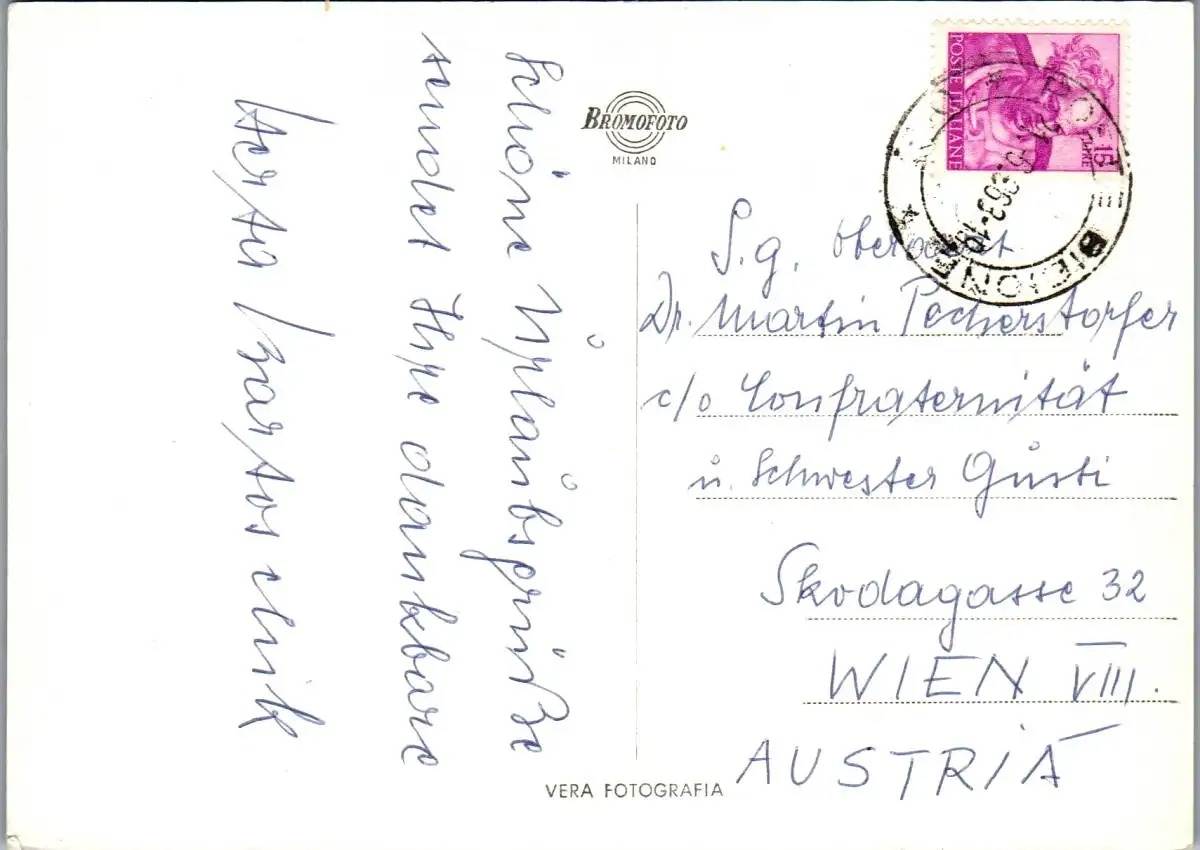 Schöne Urlaubsgrüße
sendet Ihre dankbare
Herta Bartoschik
BROMOFOTO
MILANO
POSTE ITALIANE
15
LIRE
BIBIONE
S.g. Oberarzt
Dr. Martin Pecherstorfer
c/o Confraternität
u. Schwester Gusti
Skodagasse 32
WIEN VIII.
AUSTRIA
VERA FOTOGRAFIA